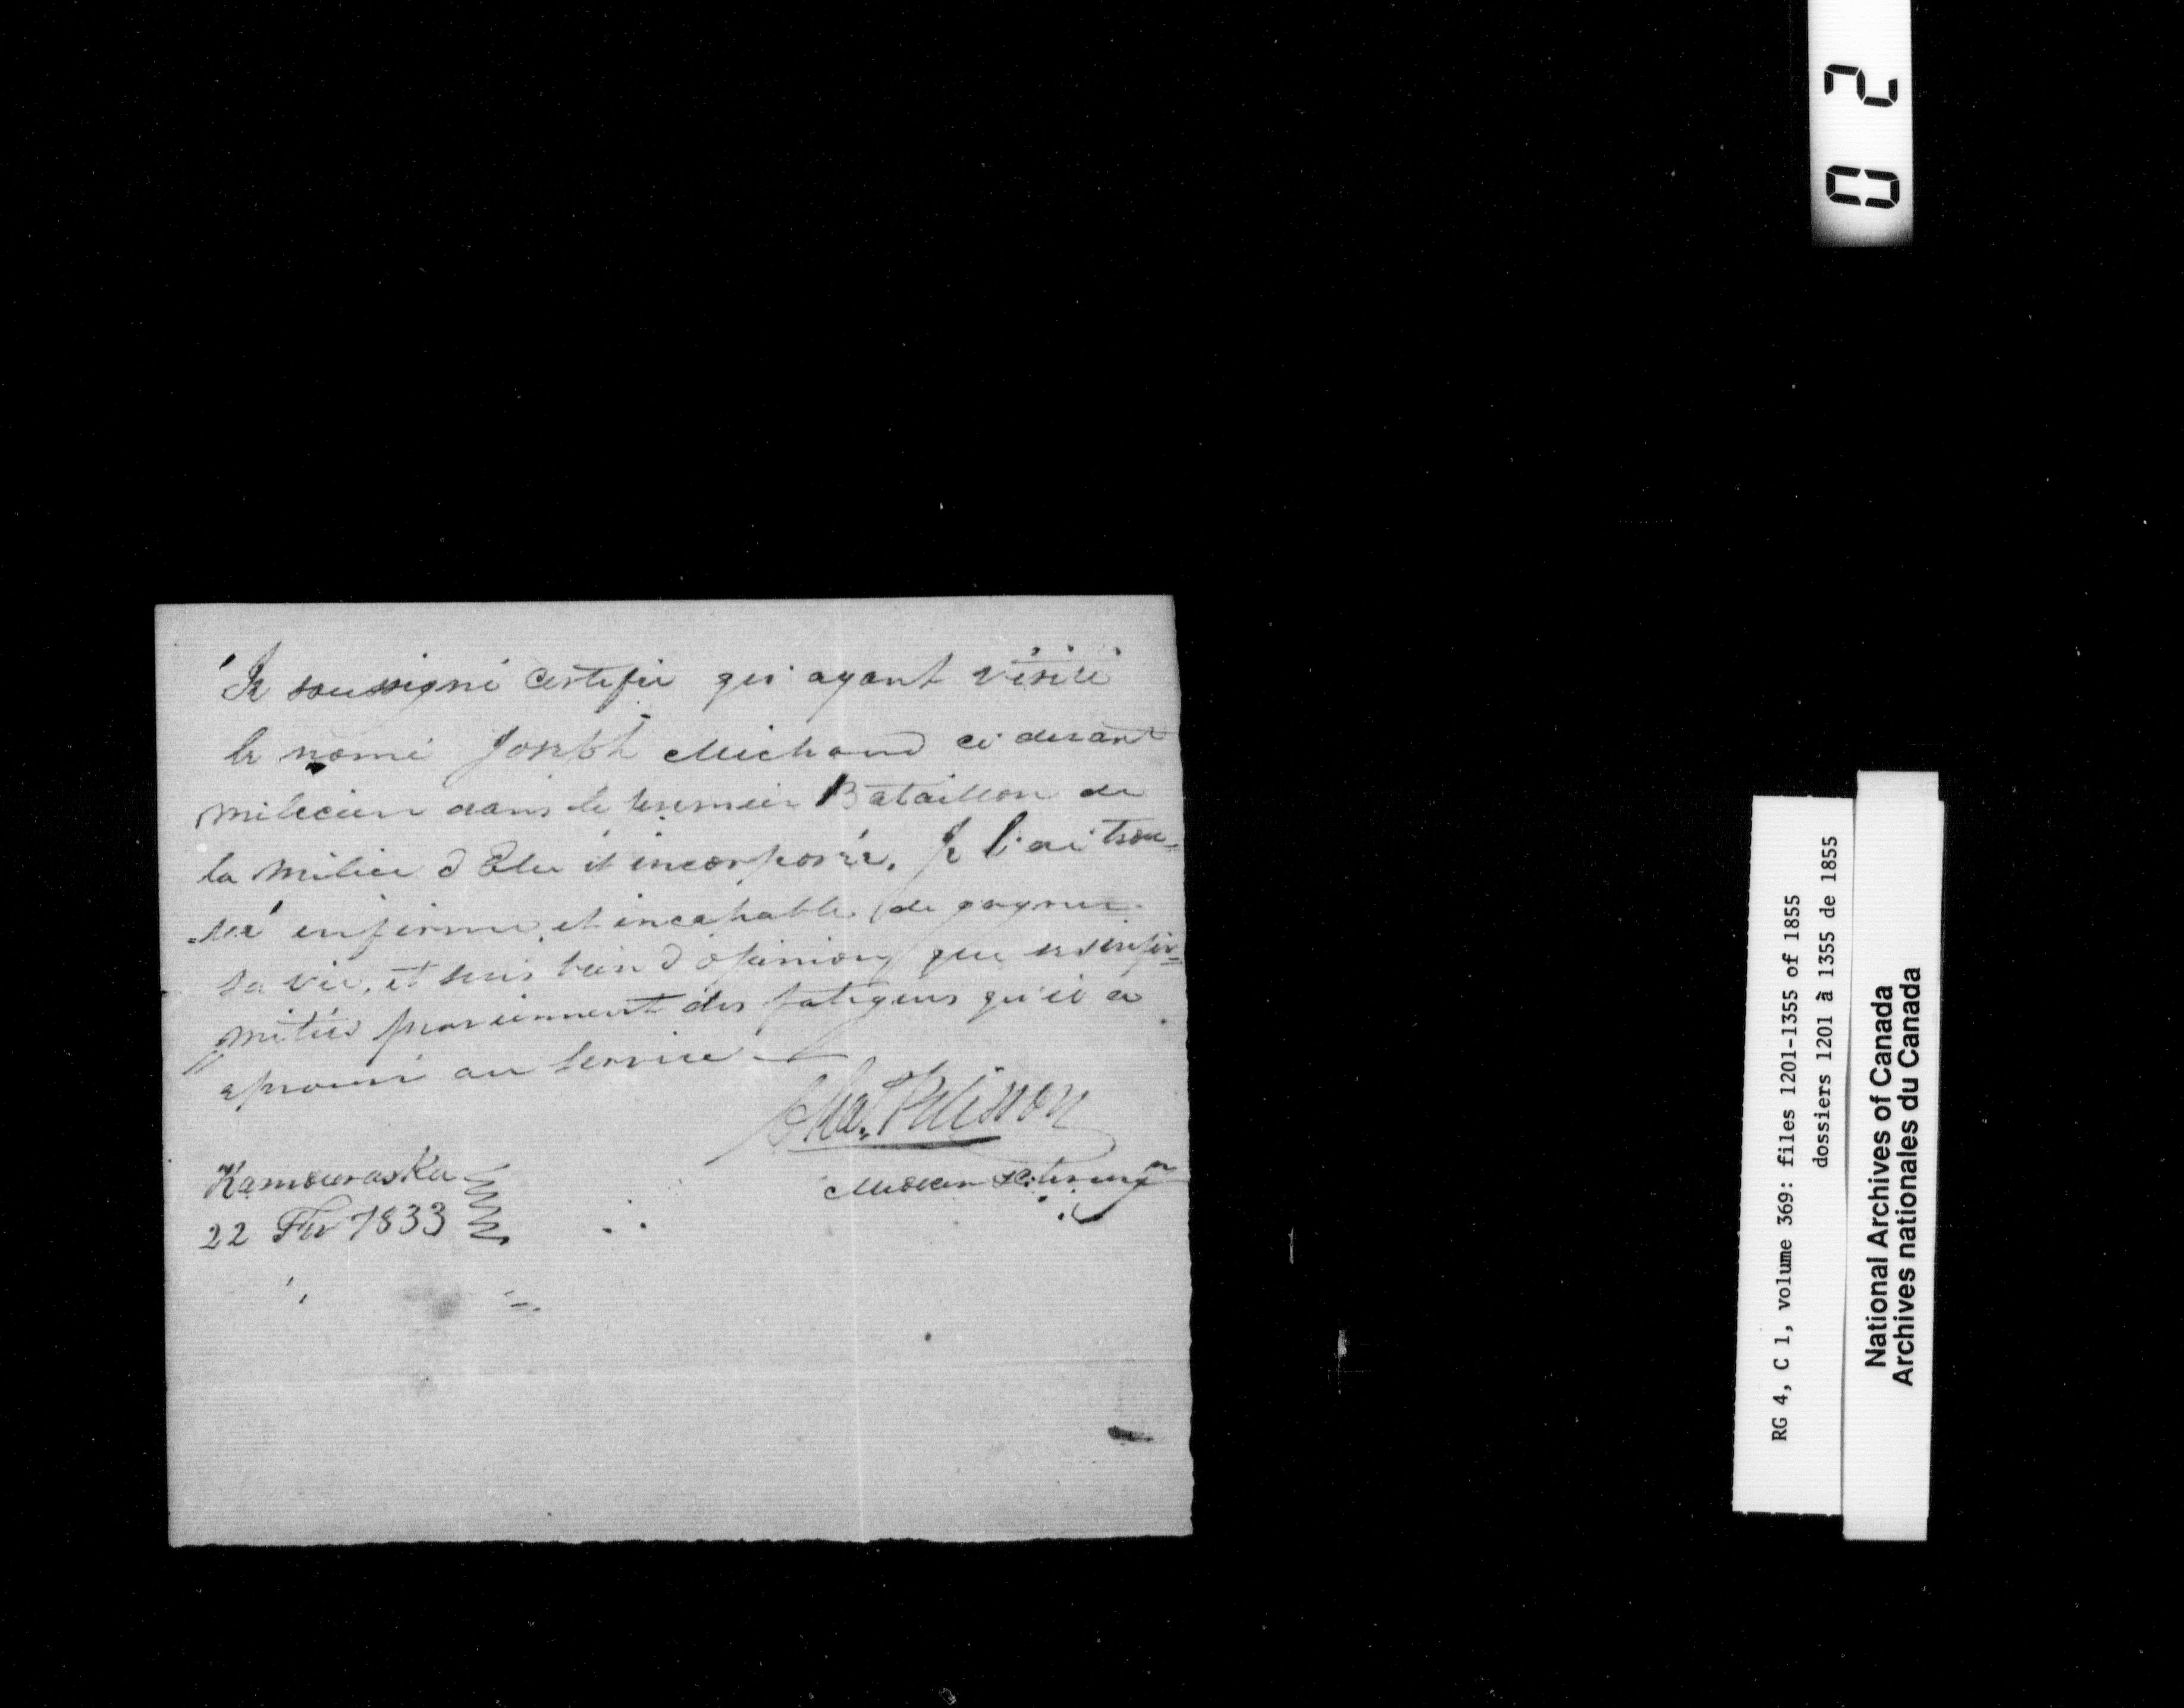 Je soussigné certifie qu'ayant visité
le nomé Joseph Michaud ci devant
milicien dans le premier Bataillon de
la milice d'Elite et incorporée. Je l'ai trou=
=vé infirme, et incapable de gagner
sa vie, et suis bien d'opinion que ses infir=
mités proviennent des fatigues qu'il a
eprouvé au service
Cha.s Pelisson
Medecin &
Kamouraska
22 Fev 1833
02
RG 4, C 1, volume 369: files 1201-1355 of 1855
dossiers 1201 à 1355 de 1855
National Archives of Canada
Archives nationales du Canada